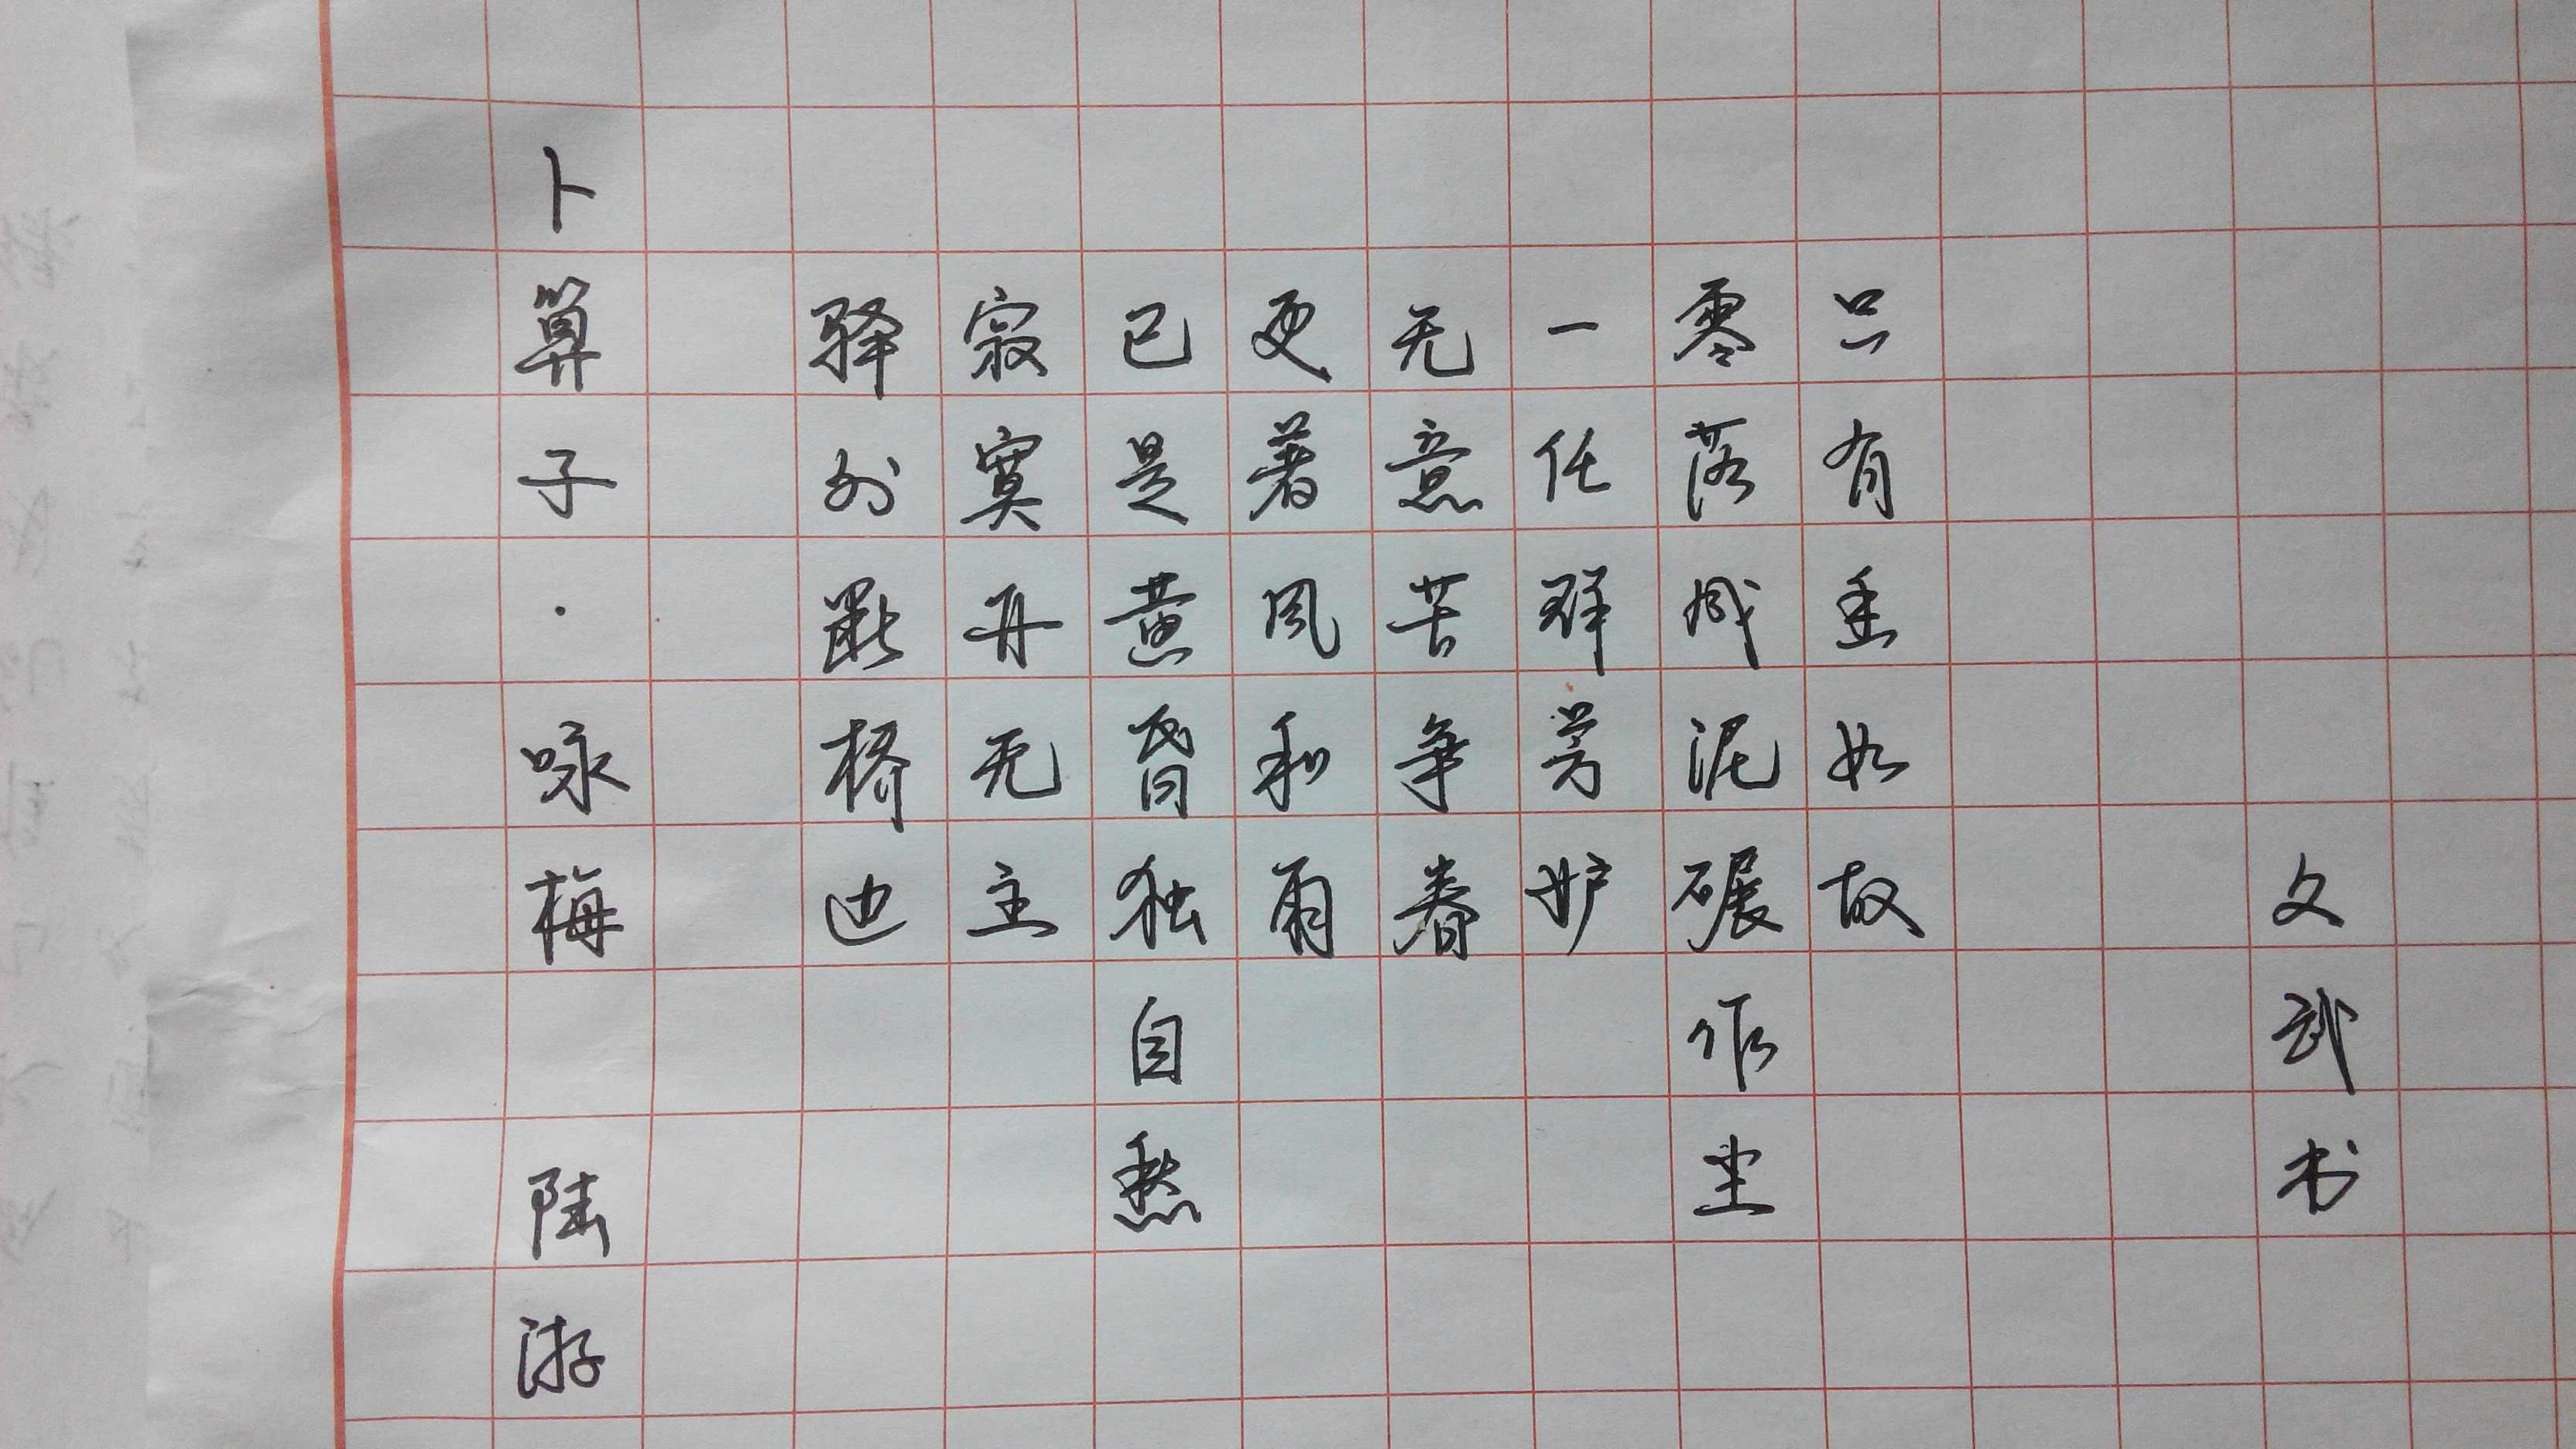 卜算子·咏梅 陆游
驿外断桥边
寂寞开无主
已是黄昏独自愁
更著风和雨
无意苦争春
一任群芳妒
零落成泥碾作尘
只有香如故
文武书